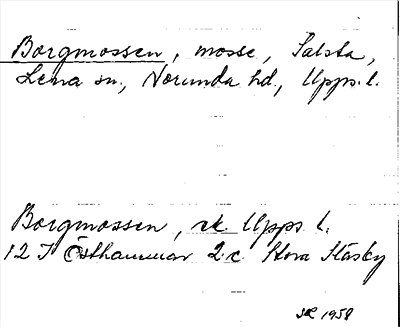 Borgmossen, mosse, Salsta,
Lena sn., Norunda hd., Upps. l.
Borgmossen, ek. Upps. l.
12 I Östhammar 2 c Stora Håsby
1958